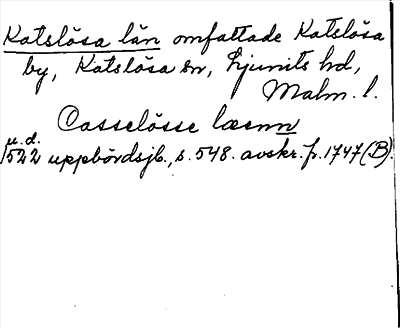 Katslösa län omfattade Katslösa
by, Katslösa sn, Ljunits hd,
Malm. l.
Casselösse læenn
u.d.
1522 uppbördsjb., s. 548. avskr. fr. 1747 (B).